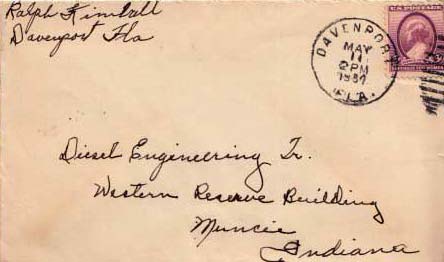 Ralph Kimball
Davenport Fla
DAVENPORT
MAY
11
2PM
1937
FLA.
U.S. POSTAGE
Diesel Engineering Tr.
Western Reserve Building
Muncie
Indiana